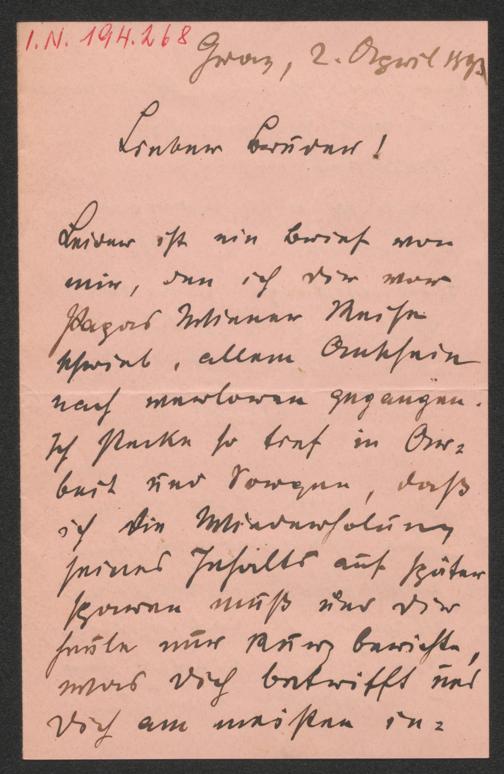 I.N. 194.268
Graz, 2. April 1893
Lieber Bruder!
Leider ist ein Brief von
mir, den ich Dir vor
Papas Wiener Reise
schrieb, allem Anschein
nach verloren gegangen.
Ich stecke so tief in Ar-
beit und Sorgen, daß
ich die Wiederholung
seines Inhalts auf später
sparen muß und Dir
heute nur kurz berichte,
was Dich betrifft und
Dich am meisten in-